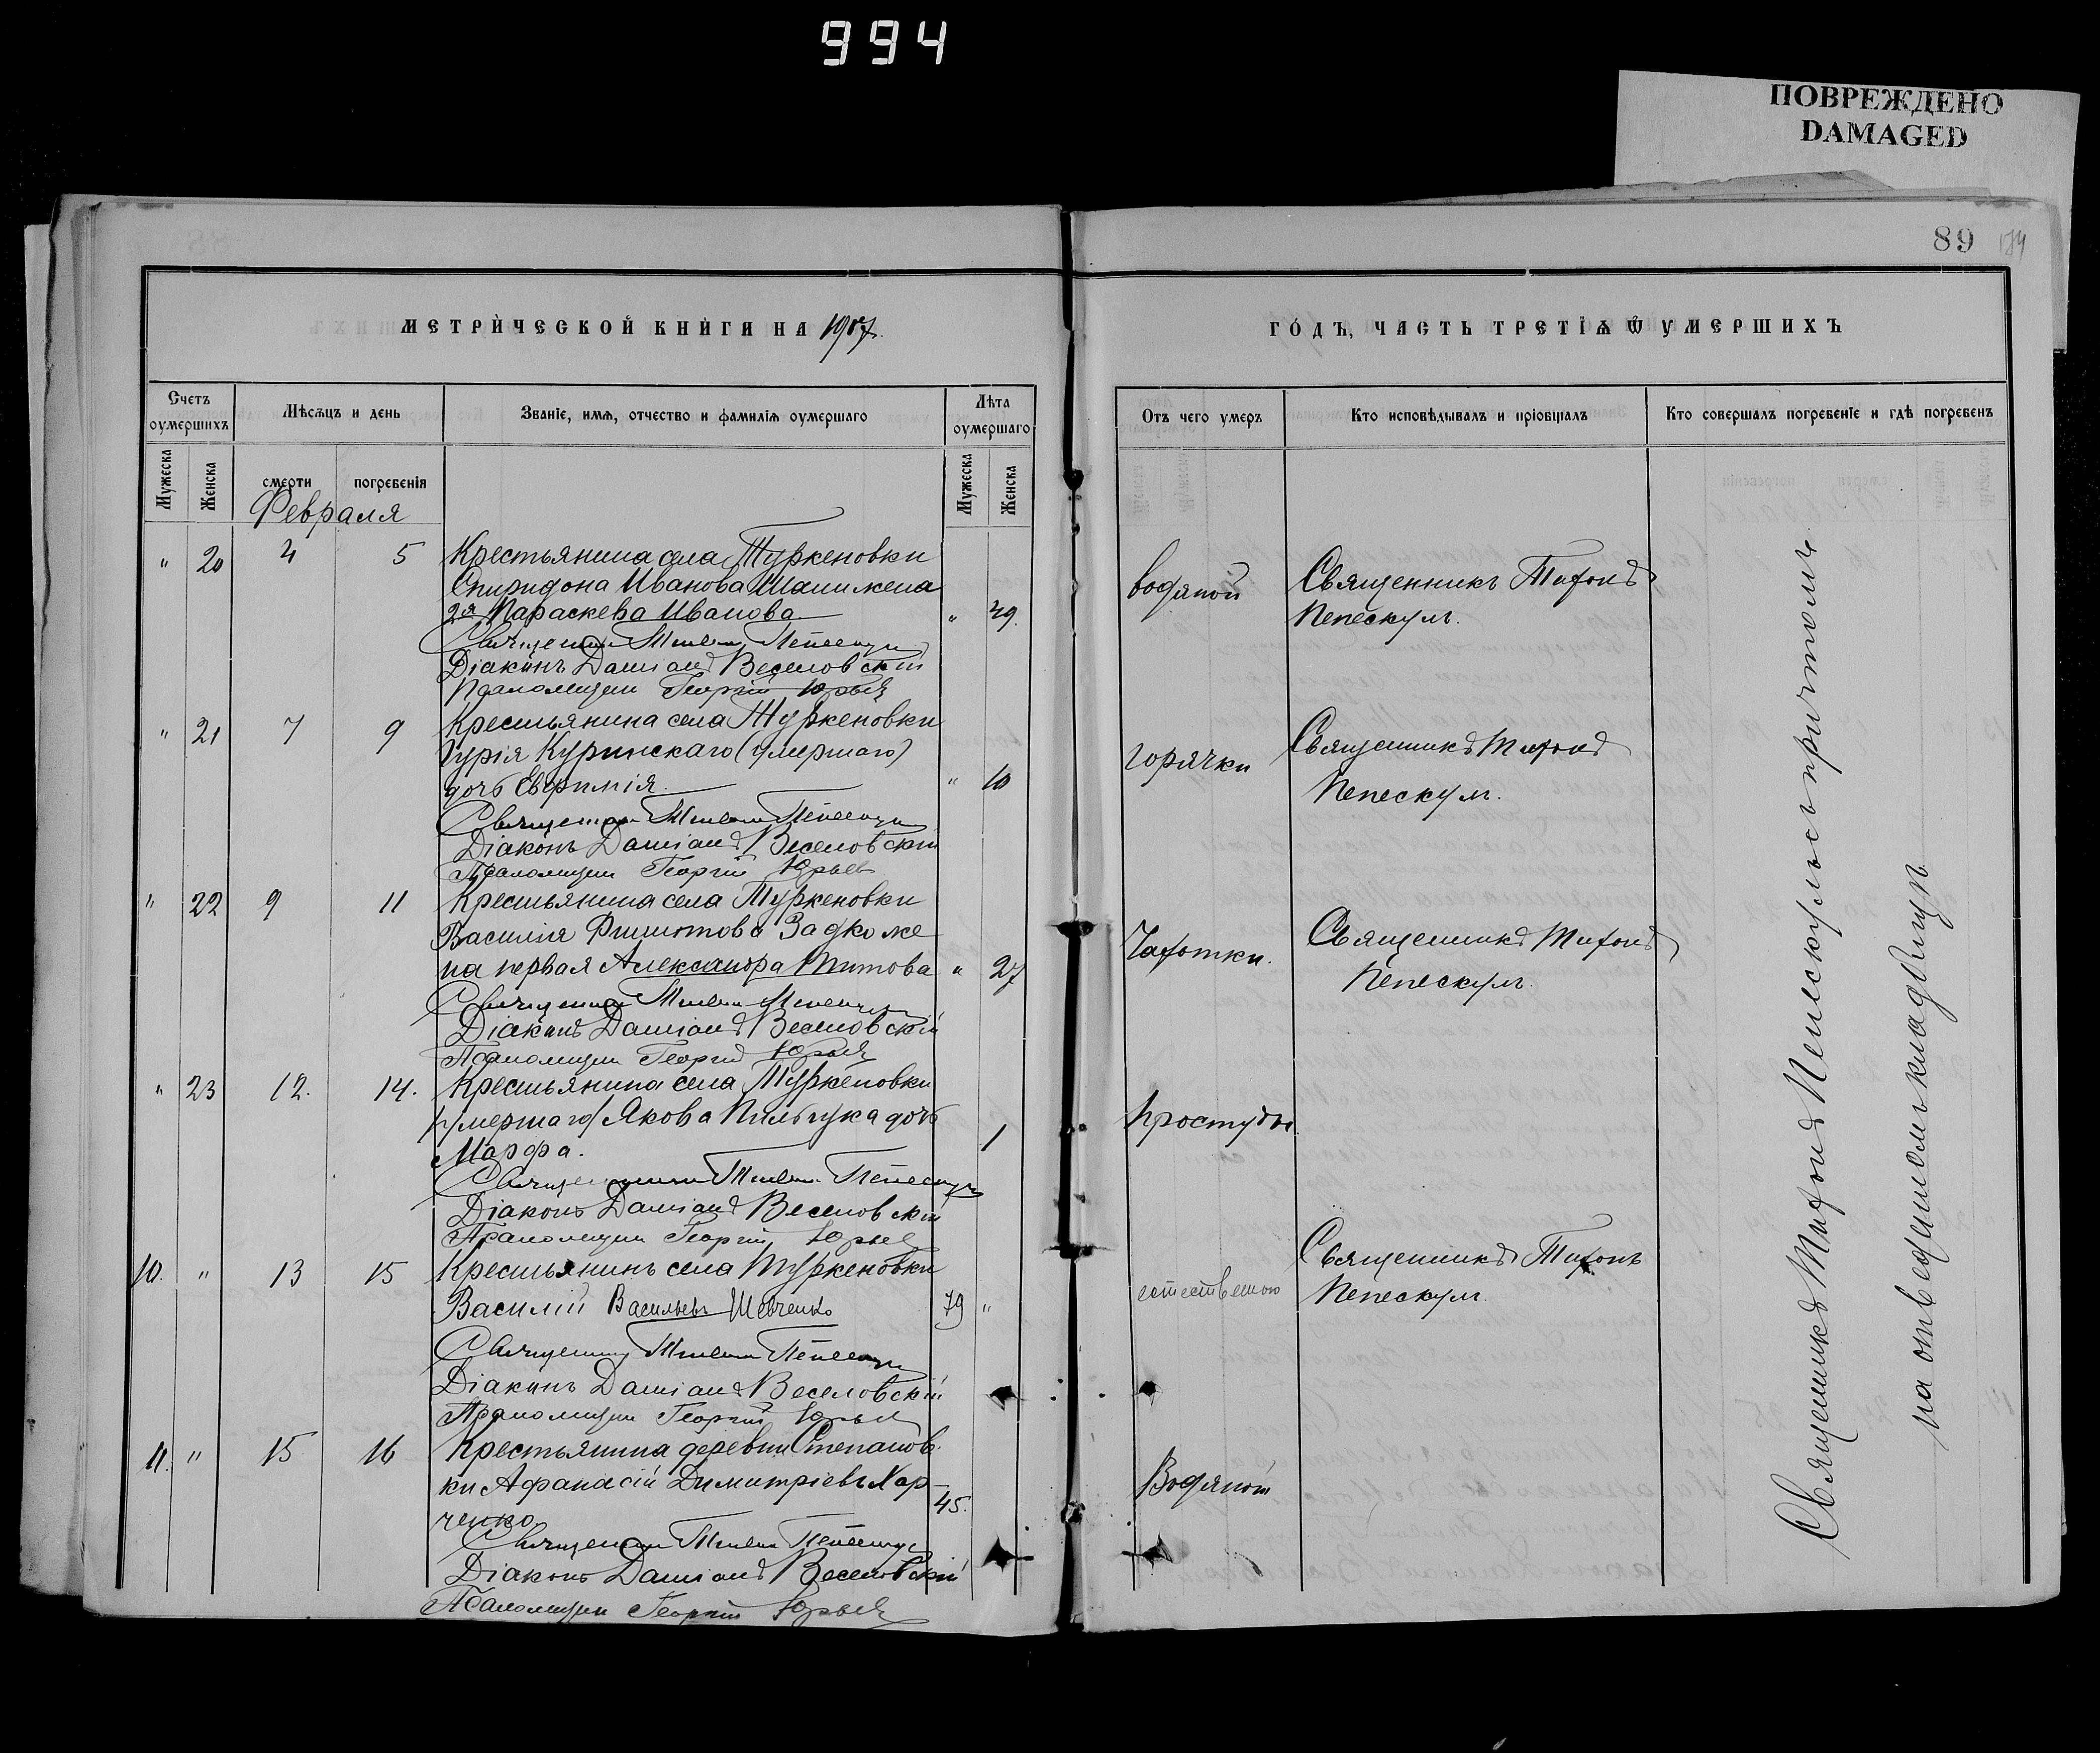 994
ПОВРЕЖДЕНО
DAMAGED
89
МЕТРИЧЕСКОЙ КНИГИ НА 1907.
Счетъ оумершихъ
Мѣсяцъ и день
Званіе, имя, отчество и фамилія оумершаго
Лѣта оумершаго
Мужеска
Женска
смерти
погребенія
Мужеска
Женска
Февраля
" 20 4 5 Крестьянина села Туркеновки
Спиридона Иванова жена
2я Параскева Иванова " 49.
Священникъ Тихонъ Пепескулъ
Діаконъ Даміанъ Веселовскій
Псаломщикъ Георгій Юрьевъ
" 21 7 9 Крестьянина села Туркеновки
Гурія Куринскаго (умершаго)
дочь Евфимія. " 10
Священникъ Тихонъ Пепескулъ
Діаконъ Даміанъ Веселовскій
Псаломщикъ Георгій Юрьевъ
" 22 9 11 Крестьянина села Туркеновки
Василія Задко же
на первая Александра Титова " 27
Священникъ Тихонъ Пепескулъ
Діаконъ Даміанъ Веселовскій
Псаломщикъ Георгій Юрьевъ
" 23 12. 14. Крестьянина села Туркеновки
/умершаго/ Якова Пильчука дочь
Марфа. 1
Священникъ Тихонъ Пепескулъ
Діаконъ Даміанъ Веселовскій
Псаломщикъ Георгій Юрьевъ
10. " 13 15 Крестьянинъ села Туркеновки
Василій Васильевъ Шевченко 79 "
Священникъ Тихонъ Пепескулъ
Діаконъ Даміанъ Веселовскій
Псаломщикъ Георгій Юрьевъ
11. " 15 16 Крестьянина деревни Степанов
ки Афанасій Димитріевъ Хар
ченко 45.
Священникъ Тихонъ Пепескулъ
Діаконъ Даміанъ Веселовскій
Псаломщикъ Георгій Юрьевъ
ГОДЪ, ЧАСТЬ ТРЕТІЯ Ѿ УМЕРШИХЪ
Отъ чего умеръ
Кто исповѣдывалъ и пріобщалъ
Кто совершалъ погребеніе и гдѣ погребенъ
водяной Священникъ Тихонъ
Пепескулъ.
горячки Священникъ Тихонъ
Пепескулъ.
Чахотки. Священникъ Тихонъ
Пепескулъ.
простуды.
естественною Священникъ Тихонъ
Пепескулъ.
Водяной
Священникъ Тихонъ Пепескулъ съ причтомъ
на отведенномъ кладбищѣ